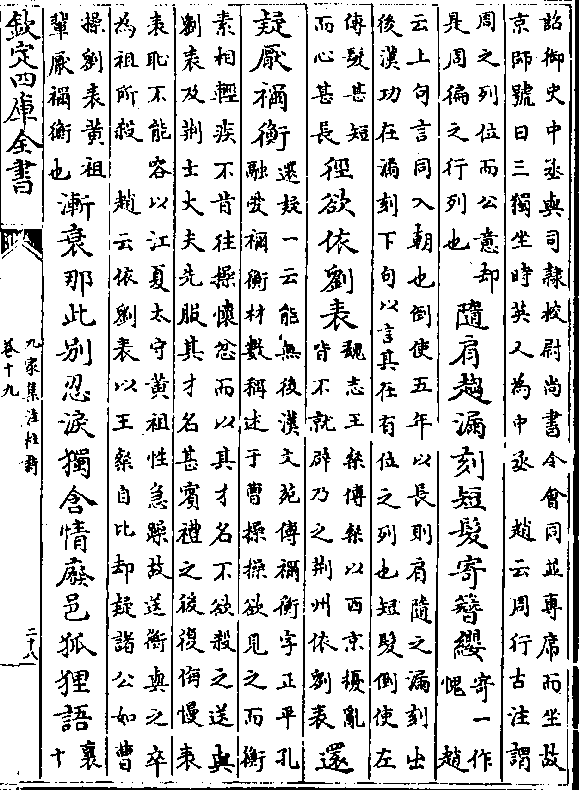 詔御史中丞與司隷校尉尚書令會同並專席而坐故
京師號曰三獨坐時英乂為中丞　趙云周行古注謂
周之列位而公意却
是周徧之行列也
隨肩趨漏刻短髮寄簪纓
寄一作
愧　趙
云上句言同入朝也倒使五年以長則肩隨之漏刻出
後漢功在漏刻下句以言其在有位之列也短髮倒使左
傳髮甚短
而心甚長
徑欲依劉表
魏志王粲傳粲以西京擾亂
皆不就辟乃之荆州依劉表
還
疑厭禰衡
還疑一云能無後漢文苑傳禰衡字正平孔
融愛禰衡材數稱述于曹操操欲見之而衡
素相輕疾不肯往操懷忿而以其才名不欲殺之送與
劉表及荆士大夫先服其才名甚賓禮之後復侮慢表
表恥不能容以江夏太守黄祖性急躁故送衡與之卒
為祖所殺　趙云依劉表以王粲自比却疑諸公如曹
操劉表黄祖
輩厭禰衡也
漸衰那此别忍淚獨含情廢邑狐狸語
襄
十
欽定四庫全書
九家集注杜詩
卷十九
二十八